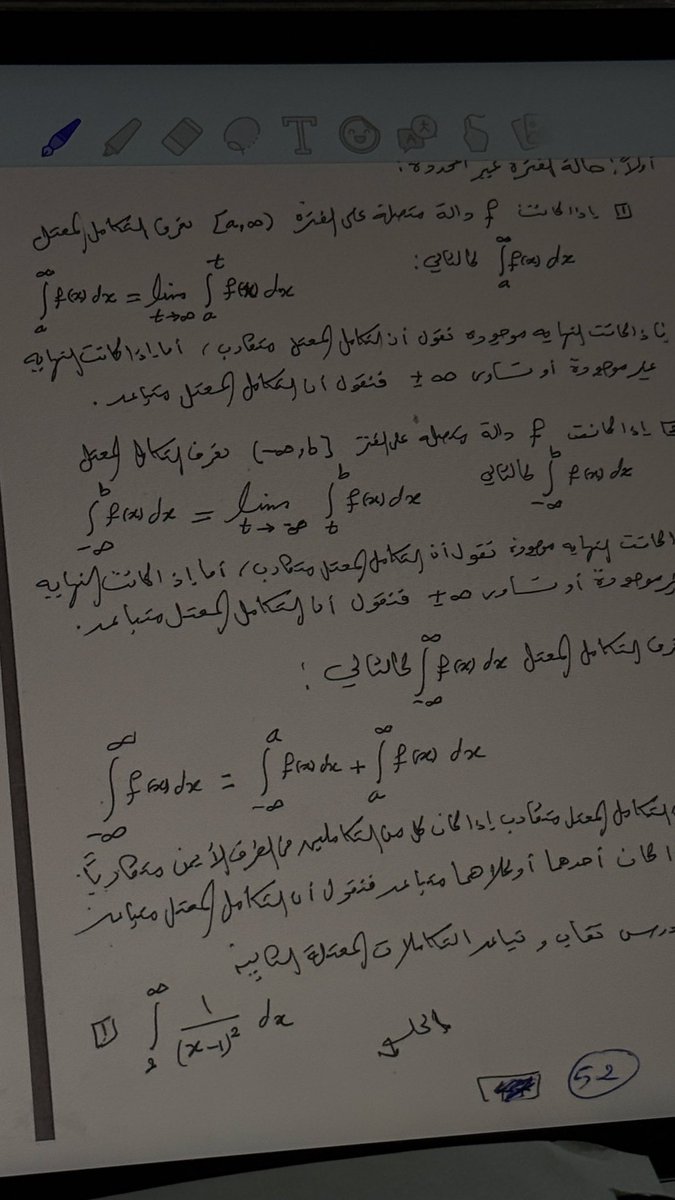 أولاً: حالة الفترة غير المحدودة:
[1] إذا كانت f دالة متصلة على الفترة [a,∞) نعرف التكامل المعتل
∫_a^∞ f(x) dx كالتالي:
∫_a^∞ f(x) dx = lim_{t→∞} ∫_a^t f(x) dx
إذا كانت النهايه موجوده نقول أن التكامل المعتل متقارب، أما إذا كانت النهايه
غير موجودة أو تساوى ±∞ فنقول أن التكامل المعتل متباعد.
إذا كانت f دالة متصله على الفترة (-∞,b] نعرف التكامل المعتل
∫_{-∞}^b f(x) dx كالتالي
∫_{-∞}^b f(x) dx = lim_{t→-∞} ∫_t^b f(x) dx
كانت النهايه موجودة نقول أن التكامل المعتل متقارب، أما إذا كانت النهايه
موجودة أو تساوى ±∞ فنقول أن التكامل المعتل متباعد.
التكامل المعتل ∫_{-∞}^∞ f(x) dx كالتالي:
∫_{-∞}^∞ f(x) dx = ∫_{-∞}^a f(x) dx + ∫_a^∞ f(x) dx
التكامل المعتل متقارب إذا كان كل من التكاملين من الطرف الأيمن متقارباً.
كان أحدها أو كلاهما متباعد فنقول أن التكامل المعتل متباعد
تقارب و تباعد التكاملات المعتلة التاليه
[1] ∫_2^∞ 1/(x-1)² dx
الحلــ
52